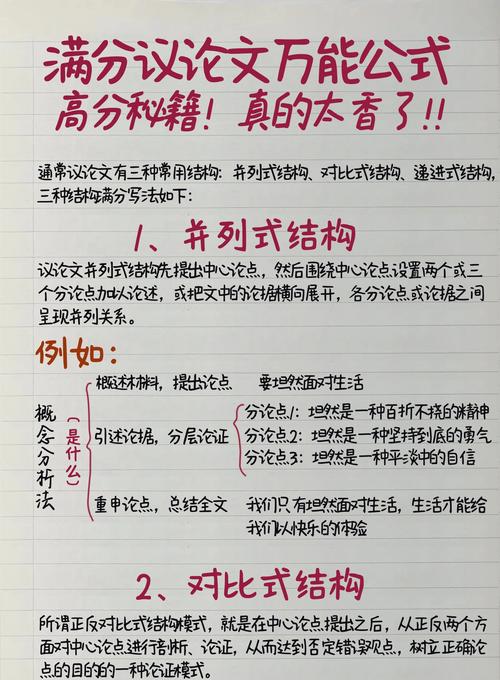 满分议论文万能公式
高分秘籍！真的太香了!!
通常议论文有三种常用结构：并列式结构、对比式结构、递进式结构，
三种结构满分写法如下：
1、并列式结构
议论文并列式结构先提出中心论点，然后围绕中心论点设置两个或三
个分论点加以论述，或把文中的论据横向展开，各分论点或论据之间
呈现并列关系。
例如：
概念分析法
（是什么）
概述材料，提出论点 要坦然面对生活
引述论据，分层论证
分论点1：坦然是一种百折不挠的精神
分论点2：坦然是一种坚持到底的勇气
分论点3：坦然是一种平淡中的自信
重申论点，总结全文 我们只有坦然面对生活，生活才能给
我们以快乐的体验
2、对比式结构
所谓正反对比式结构模式，就是在中心论点提出之后，从正反两个方
面对中心论点进行剖析、论证，从而达到否定错误观点，树立正确论
点的目的的一种论证模式。